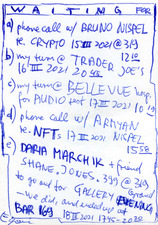 WAITING FOR
a) phone call w/ BRUNO NISPEL
re. CRYPTO 15 III 2021 @ 349
b) my turn @ TRADER JOE'S
16 III 2021 2045
c) my turn @ BELLEVUE hosp.
for AUDIO test 17 III 2021
d) phone call w/ ARMYAN
re. NFTs 17 III 2021 NISPEL
1558
e) DARIA MARCHIK + friend
SHANE, JONES. 349 @ 349
to go out for GALLERY EVENING
- we did, and ended up at
BAR 169 18 III 2021 1745-2030